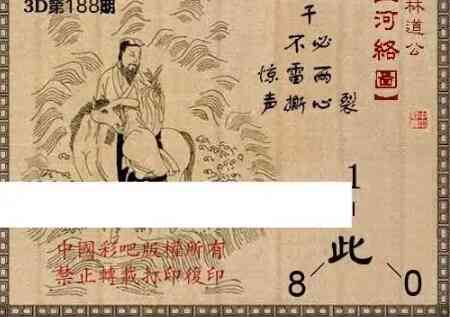 3D第188期
林道公
河絡圖】
必兩心裂
干雷撕
不
惊声
1
此
8
0
中國彩吧版權所有
禁止轉載打印復印